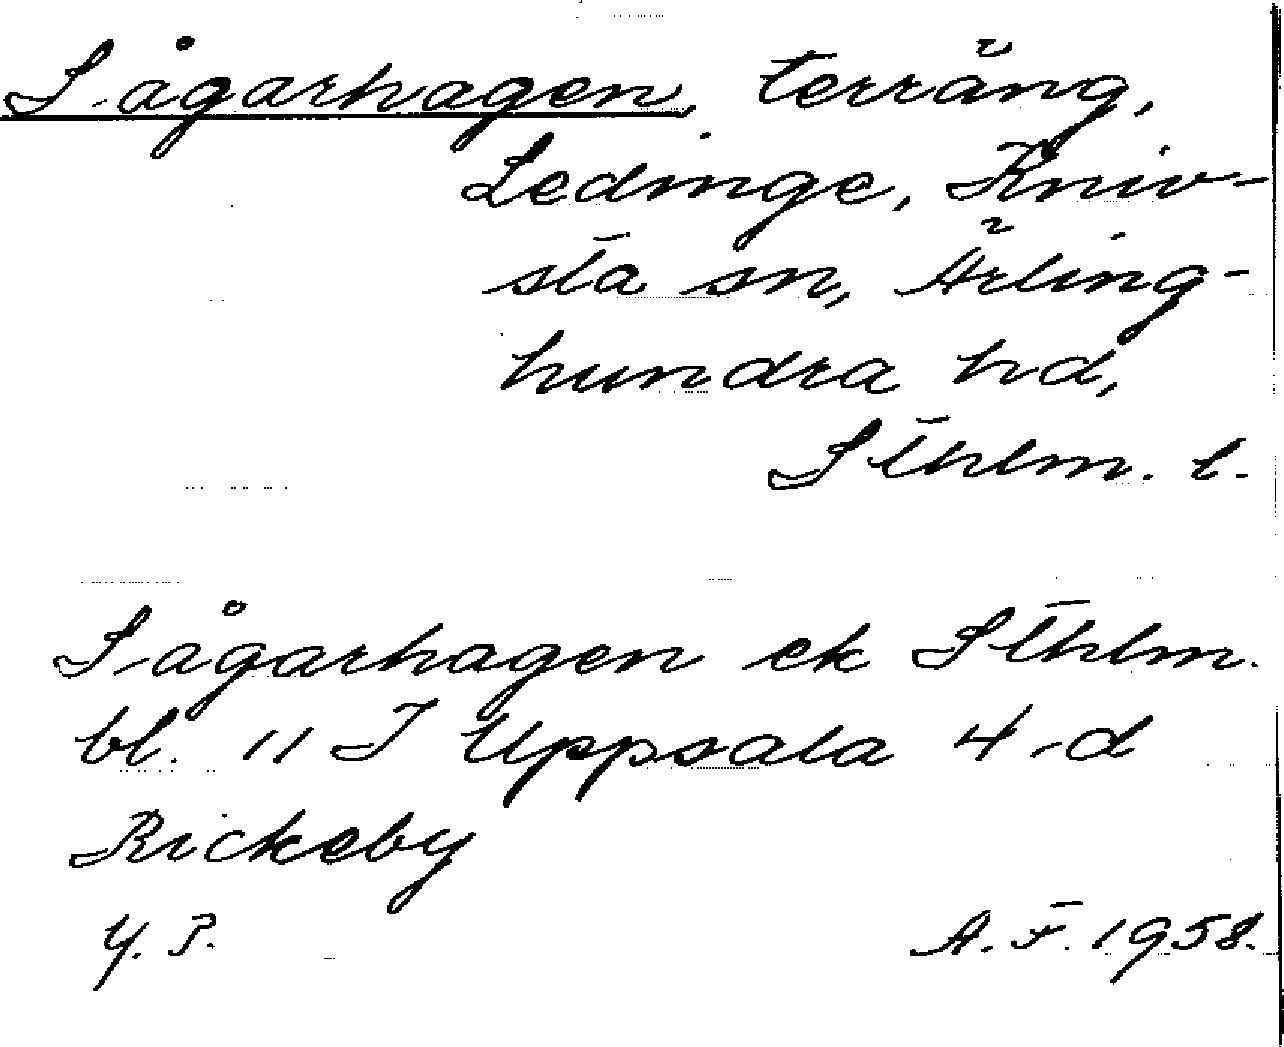 Sågarhagen, terräng,
Ledinge, Kniv-
sta sn, Ärling-
hundra hd,
Sthlm. l.
Sågarhagen ek Sthlm.
bl. 11 I Uppsala 4-d
Rickeby
Y. P.
A. F. 1958.